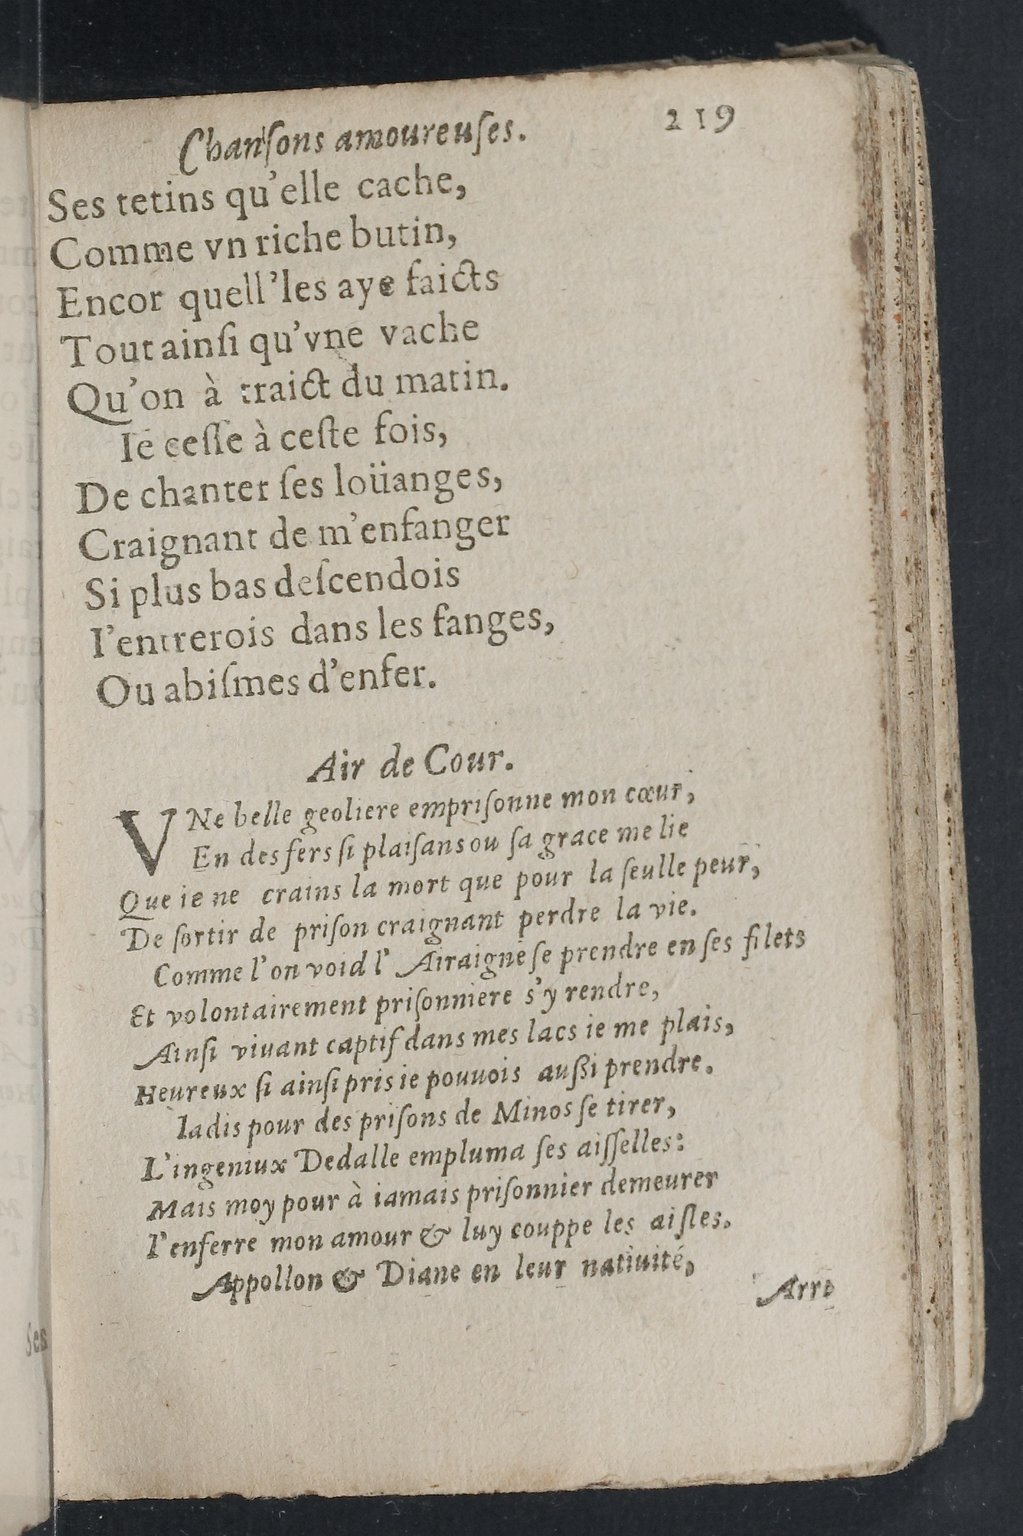 Chanſons amoureuſes. 219
Ses tetins qu'elle cache,
Comme vn riche butin,
Encor quell'les aye faicts
Tout ainſi qu'vne vache
Qu'on à traict du matin.
Ie ceſſe à ceſte fois,
De chanter ſes loüanges,
Craignant de m'enfanger
Si plus bas deſcendois
I'entrerois dans les fanges,
Ou abiſmes d'enfer.
Air de Cour.
VNe belle geoliere empriſonne mon cœur,
En des fers ſi plaiſans ou ſa grace me lie
Que ie ne crains la mort que pour la ſeulle peur,
De ſortir de priſon craignant perdre la vie.
Comme l'on void l'Airaigne ſe prendre en ſes filets
Et volontairement priſonniere s'y rendre,
Ainſi viuant captif dans mes lacs ie me plais,
Heureux ſi ainſi pris ie pouuois auſſi prendre.
Iadis pour des priſons de Minos ſe tirer,
L'ingeniux Dedalle empluma ſes aiſſelles:
Mais moy pour à iamais priſonnier demeurer
I'enferre mon amour & luy couppe les aiſles.
Appollon & Diane en leur natiuité,
Arre
Ses